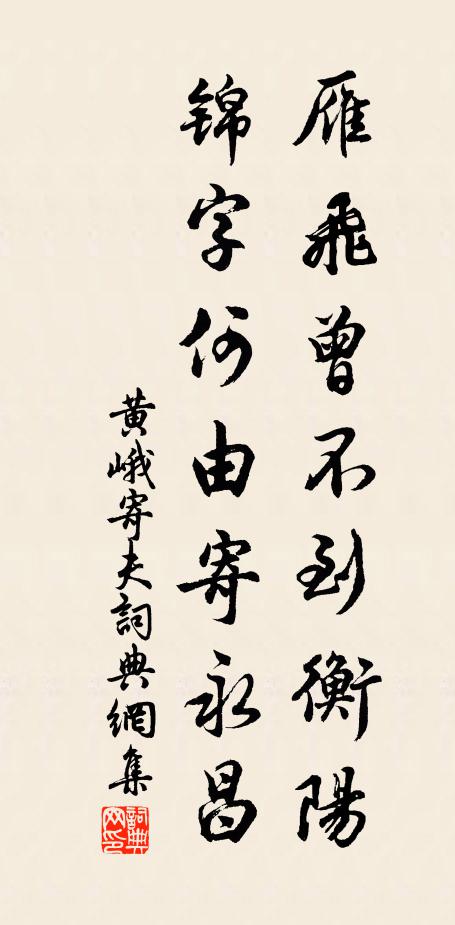 雁飛曾不到衡陽
錦字何由寄永昌
黃峨寄夫詞典網集
詞典網印